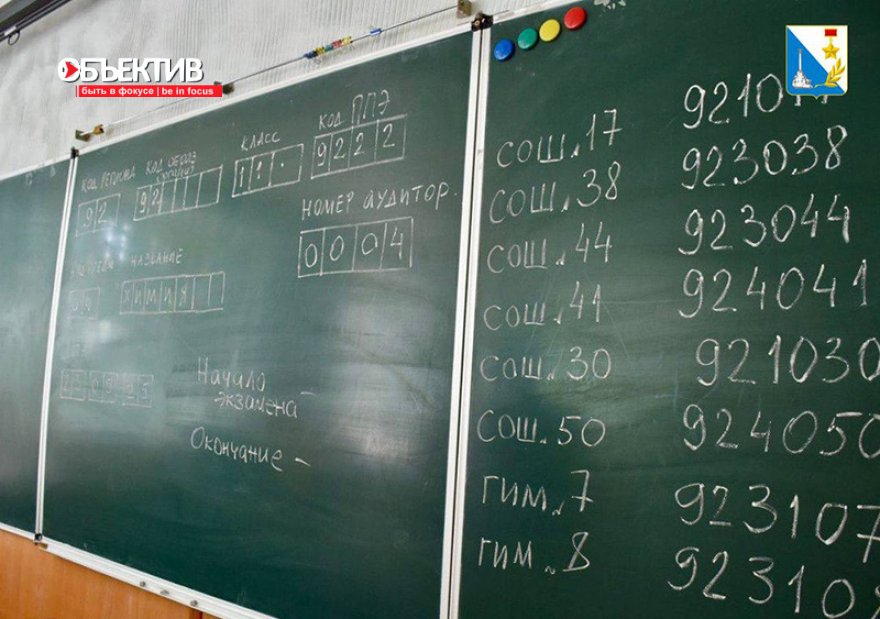 ОБЪЕКТИВ
быть в фокусе | be in focus
КОД РЕГИОНА КОД ОБРАЗ КЛАСС КОД ППЭ
92 92 11. 9222
НОМЕР АУДИТОР.
0004
НАЗВАНИЕ
ХИМИЯ
Начало
экзамена –
Окончание –
СОШ. 17
СОШ. 38 923038
СОШ. 44 923044
СОШ. 41 924041
СОШ. 30 921030
СОШ. 50 924050
ГИМ. 7 923107
ГИМ. 8